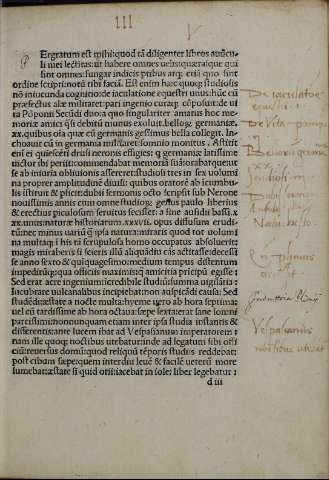 III
V
Pergratum est mihi quod tã diligenter libros auũculi
mei lectitas: ut habere omnes uelis: quæras que qui
sint omnes: fungar indicis partibus atq; etiã quo sint
ordine scripti notũ tibi faciã. Est enim hæc quoq; studiosis
nõ iniucunda cognitio: de iaculatione equestri unus: hũc cũ
præfectus alæ militaret: pari ingenio curaq; cõposuit: de ui
ta Põponii Secũdi duo: a quo singulariter amatus hoc me-
moriæ amici q̃si debitũ munus exoluit. bellog; germaniæ.
xx. quibus oĩa quæ cũ germanis gessimus bella collegit. In-
choauit cũ in germania militaret somnio monitus. Astitit
ei quiescẽti drusi neronis effigies: q germaniæ latissime
uictor ibi periit: commendabat memoriã suã: orabat que ut
se ab iniuria obliuionis assereret: studiosi tres in sex uolumi
na propter amplitudinẽ diuisi: quibus oratorẽ ab icunabu-
lis istituit & pficit: dubii sermonis octo scripsit sub Nerone
nouissimis annis cum omne studiorũ genus paulo liberius
& erectius piculosum seruitus fecisset: a fine aufidii bassi. x
xx. unus: naturæ historiarum. xxxvii. opus diffusum erudi-
tũ: nec minus uariũ q̃ ipsa natura: miraris quod tot uolumi
na multaq; i his tã scrupulosa homo occupatus absoluerit:
magis miraberis si scieris illũ aliquãdiu cãs actitasse: decessis-
se anno sexto & quiquagesimo: medium tempus distentum
impeditũq; qua officiis maximis: q̃ amicitia pricipũ egisse:
Sed erat acre ingenium: incredibile studiũ: summa uigilantia:
lucubrare uulcanalibus incipiebat: non auspicãdi causa: Sed
studẽdi: æstate a nocte multa: hyeme uero ab hora septima:
uel cũ tardissime ab hora octaua: sæpe sexta: erat sane somni
parcissimi: nonnunquam etiam inter ipsa studia instantis &
differentis: ante lucem ibat ad Vespasianum imperatorem:
nam ille quoq; noctibus utebatur: inde ad legatum sibi offi
ciũ: reuersus domũ: quod reliquũ tẽporis studiis reddebat:
post cibum sæpe: quem interdiu leuẽ & facilẽ ueterũ more
sumebat: æstate si quid otii: iacebat in sole: liber legebatur:
d iii
De iaculatione
equestri. 1.
De Vita pomp.
Bellorũ germ.
Studiosi. iii
Dubii sermonis
Natu. histo.
Vespasianus
noctibus utebat